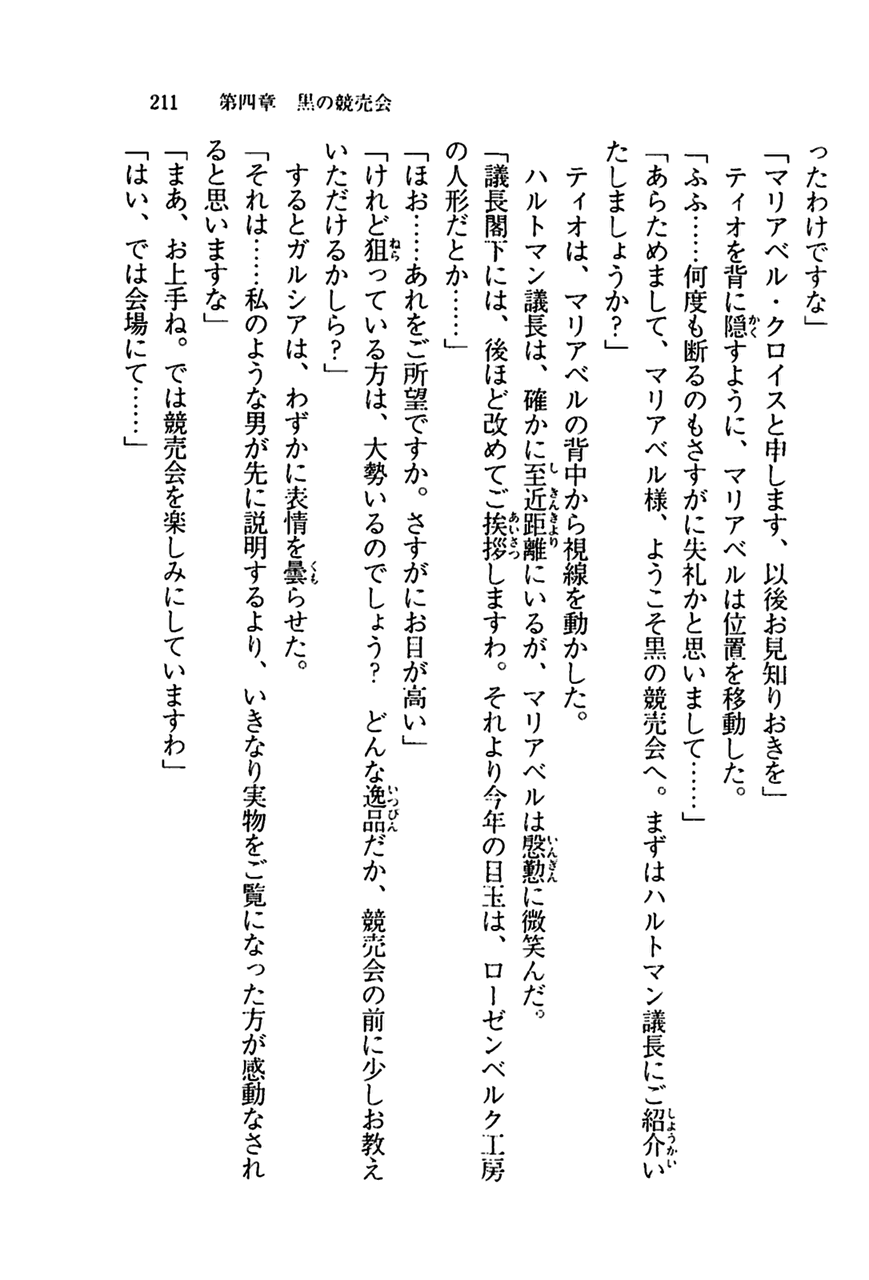 211　第四章　黒の競売会
ったわけですな」
「マリアベル・クロイスと申します、以後お見知りおきを」
　ティオを背に隠すように、マリアベルは位置を移動した。
「ふふ……何度も断るのもさすがに失礼かと思いまして……」
「あらためまして、マリアベル様、ようこそ黒の競売会へ。まずはハルトマン議長にご紹介い
たしましょうか？」
　ティオは、マリアベルの背中から視線を動かした。
　ハルトマン議長は、確かに至近距離にいるが、マリアベルは慇懃に微笑んだ。
「議長閣下には、後ほど改めてご挨拶しますわ。それより今年の目玉は、ローゼンベルク工房
の人形だとか……」
「ほお……あれをご所望ですか。さすがにお目が高い」
「けれど狙っている方は、大勢いるのでしょう？　どんな逸品だか、競売会の前に少しお教え
いただけるかしら？」
　するとガルシアは、わずかに表情を曇らせた。
「それは……私のような男が先に説明するより、いきなり実物をご覧になった方が感動なされ
ると思いますな」
「まあ、お上手ね。では競売会を楽しみにしていますわ」
「はい、では会場にて……」